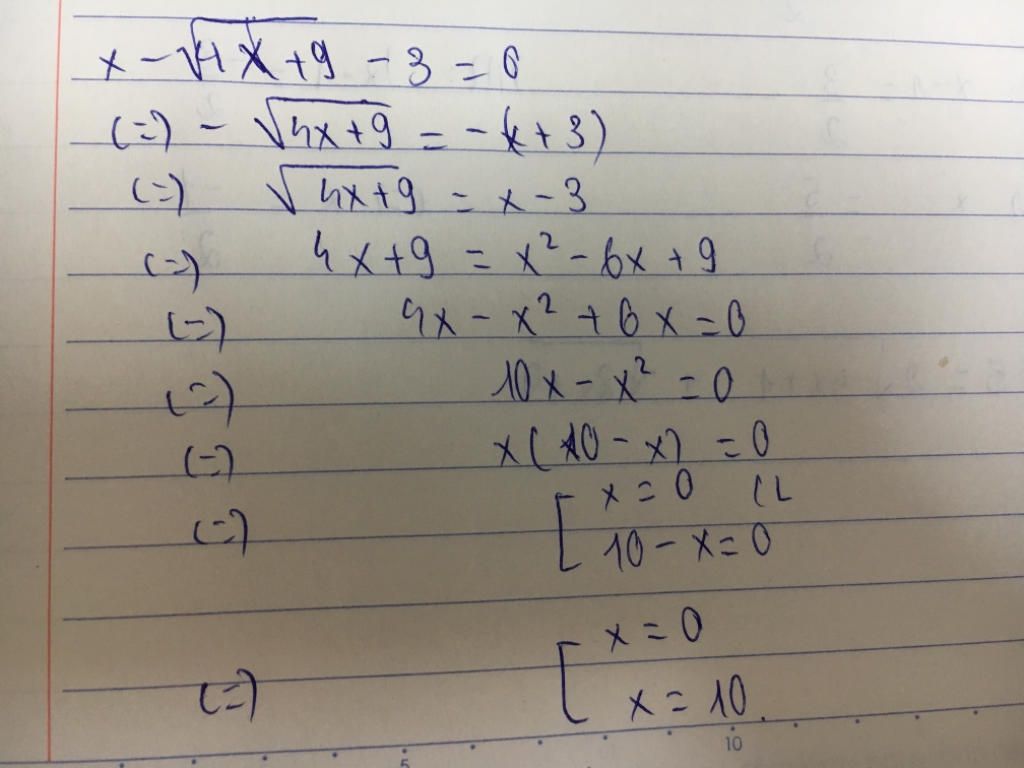 x - √4x+9 - 3 = 0
(=) - √4x+9 = -(x+3)
(=) √4x+9 = x - 3
(=) 4x+9 = x² - 6x + 9
(=) 4x - x² + 6x = 0
(=) 10x - x² = 0
(=) x(10 - x) = 0
(=) [ x = 0 (L
10 - x = 0
(=) [ x = 0
x = 10.
5 10